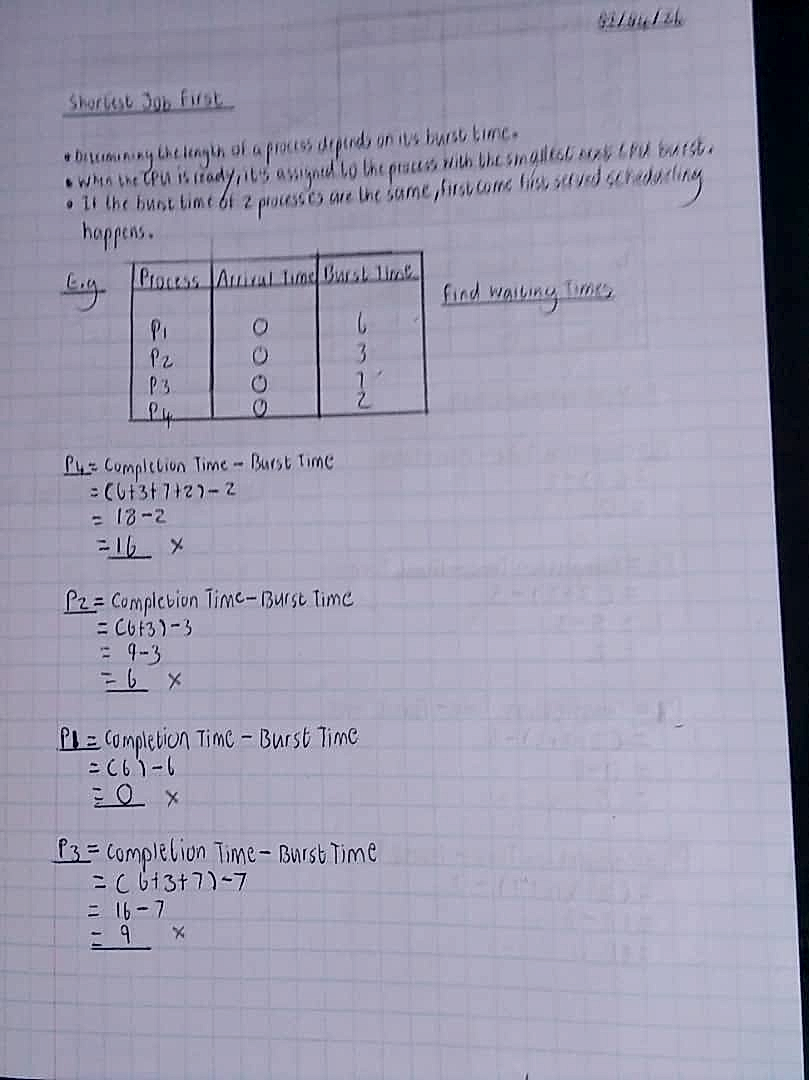 Shortest Job First
• Determining the length of a process depends on its burst time.
• When the CPU is ready, it's assigned to the process with the smallest next CPU burst.
• If the burst time of 2 processes are the same, first come first served scheduling
happens.
E.g
Process Arrival Time Burst Time
Find Waiting Times
P1 0 6
P2 0 3
P3 0 7
P4 0 2
P4 = Completion Time - Burst Time
= (6+3+7+2) - 2
= 18 - 2
= 16 x
P2 = Completion Time - Burst Time
= (6+3) - 3
= 9 - 3
= 6 x
P1 = Completion Time - Burst Time
= (6) - 6
= 0 x
P3 = Completion Time - Burst Time
= (6+3+7) - 7
= 16 - 7
= 9 x